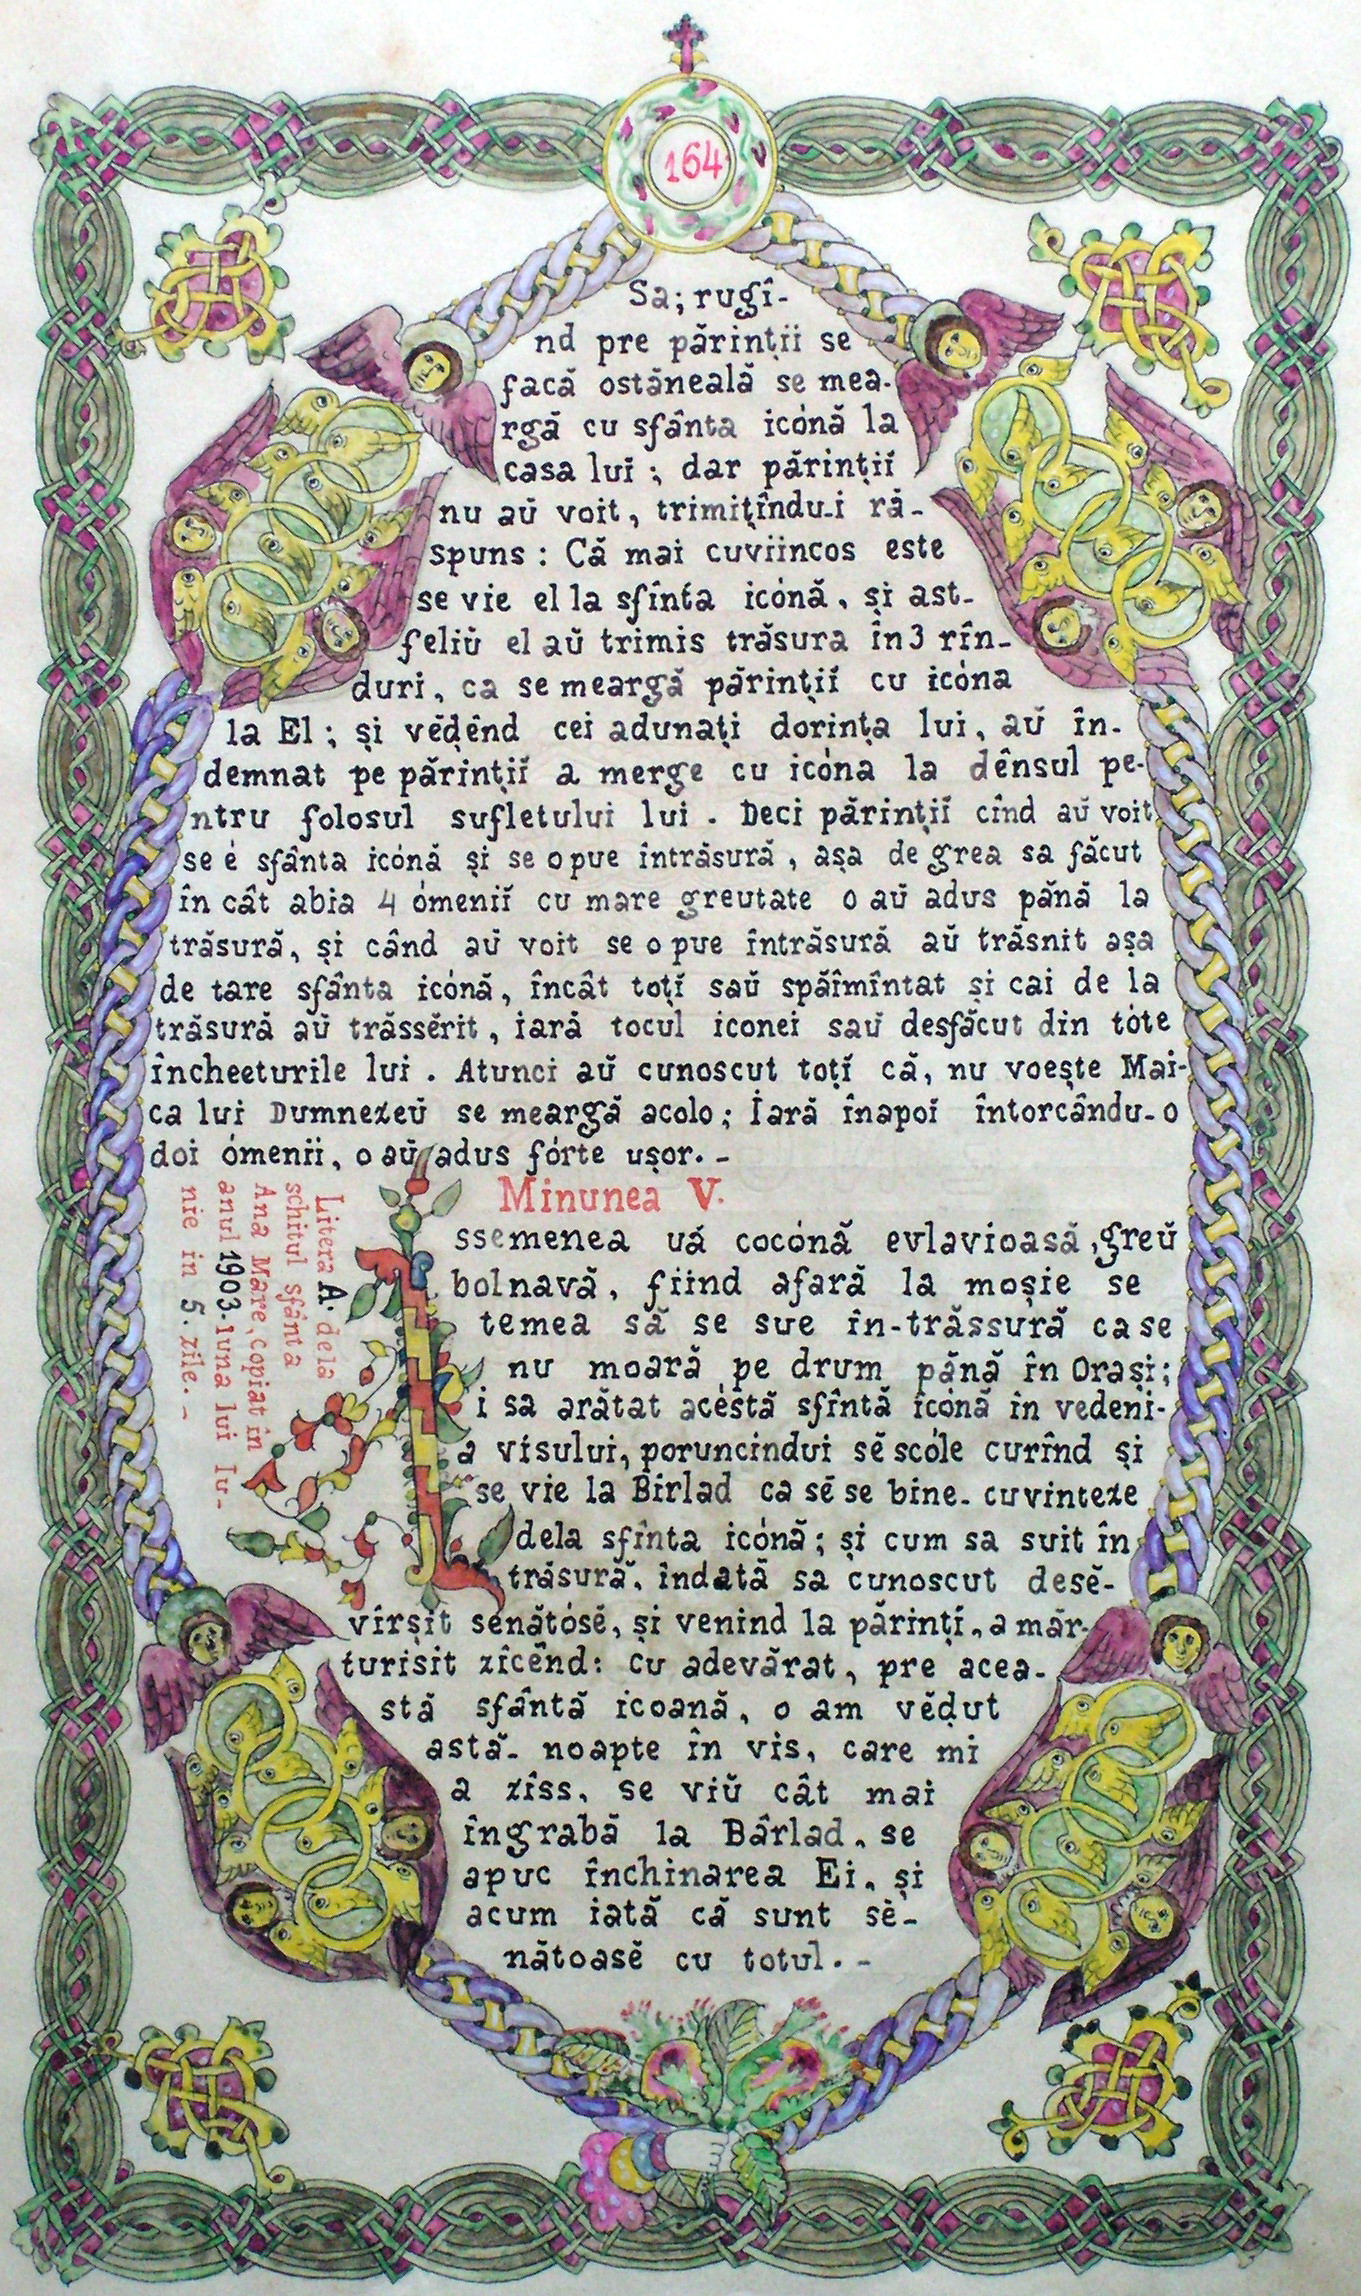 164
Sa; rugî-
nd pre părinții se
facă ostăneală se mea-
rgă cu sfânta icónă la
casa lui; dar părințiĭ
nu aŭ voit, trimițîndu-i ră-
spuns: Că mai cuviincos este
se vie el la sfînta icónă, și ast-
feliŭ el aŭ trimis trăsura în 3 rîn-
duri, ca se meargă părințiĭ cu icóna
la El; și vĕḑênd cei adunați dorința lui, aŭ în-
demnat pe părințiĭ a merge cu icóna la dênsul pe-
ntru folosul sufletului lui. Deci părințiĭ cînd aŭ voit
se é sfânta icónă și se o pue întrăsură, așa de grea sa făcut
în cât abia 4 ómeniĭ cu mare greutate o aŭ adus pănă la
trăsură, și când aŭ voit se o pue întrăsură aŭ trăsnit așa
de tare sfânta icónă, încât toțĭ saŭ spăimîntat și cai de la
trăsură aŭ trăssĕrit, iară tocul iconei saŭ desfăcut din tóte
încheeturile lui. Atunci aŭ cunoscut toțĭ că, nu voește Mai-
ca lui Dumnezeŭ se meargă acolo; Iară înapoĭ întorcându-o
doi ómenii, o aŭ adus fórte ușor. -
Minunea V.
ssemenea uá cocónă evlavioasă, greŭ
bolnavă, fiind afară la moșie se
temea să se sue în-trăssură ca se
nu moară pe drum pănă în Orași;
i sa arătat acéstă sfîntă icónă în vedeni-
a visului, poruncindui sĕ scóle curînd și
se vie la Bîrlad ca sĕ se bine-cuvinteze
dela sfînta icónă; și cum sa suit în
trăsură, îndată sa cunoscut desĕ-
vîrșit senătósĕ, și venind la părințĭ, a măr-
turisit zîcênd: Cu adevărat, pre acea-
stă sfântă icoană, o am vĕḑut
astă-noapte în vis, care mi
a zîss, se viŭ cât mai
îngrabă la Bârlad, se
apuc închinarea Ei, și
acum iată că sunt sĕ-
nătoasĕ cu totul. -
Litera A. dela
schitul sfânta
Ana Mare, copiat în
anul 1903. luna lui Iu-
nie in 5. zile. -